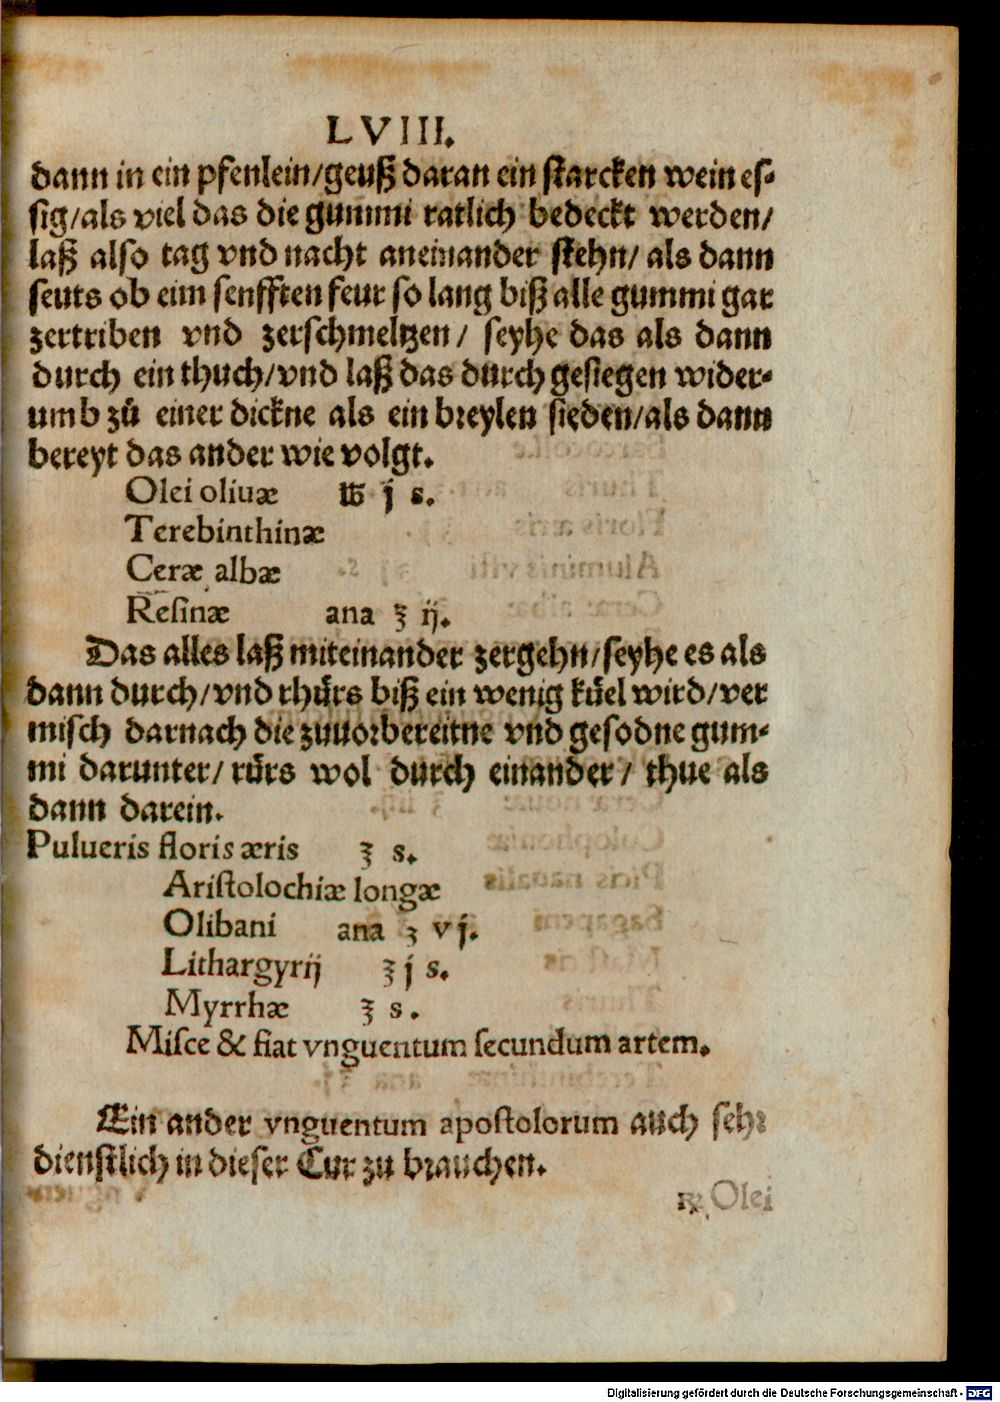 LVIII.
dann in ein pfenlein/geuß daran ein starcken wein es-
sig/als viel das die gummi ratlich bedeckt werden/
laß also tag vnd nacht aneinander stehn/ als dann
seuts ob eim senfften feur so lang biß alle gummi gar
zertriben vnd zerschmeltzen/ seyhe das als dann
durch ein thuch/vnd laß das durch gesiegen wider-
umb zů einer dickne als ein breylen sieden/als dann
bereyt das ander wie volgt.
Olei oliuæ ℔ j s.
Terebinthinæ
Ceræ albæ
Resinæ ana ℥ ij.
Das alles laß miteinander zergehn/seyhe es als
dann durch/vnd rhůrs biß ein wenig kůel wird/ver
misch darnach die zuuorbereitne vnd gesodne gum-
mi darunter/ růrs wol durch einander/ thue als
dann darein.
Pulueris floris æris ℥ s.
Aristolochiæ longæ
Olibani ana ʒ vj.
Lithargyrij ℥ j s.
Myrrhæ ℥ s.
Misce & fiat vnguentum secundum artem.
Ein ander vnguentum apostolorum auch sehr
dienstlich in dieser Cur zu brauchen.
℞ Olei
Digitalisierung gefördert durch die Deutsche Forschungsgemeinschaft - DFG